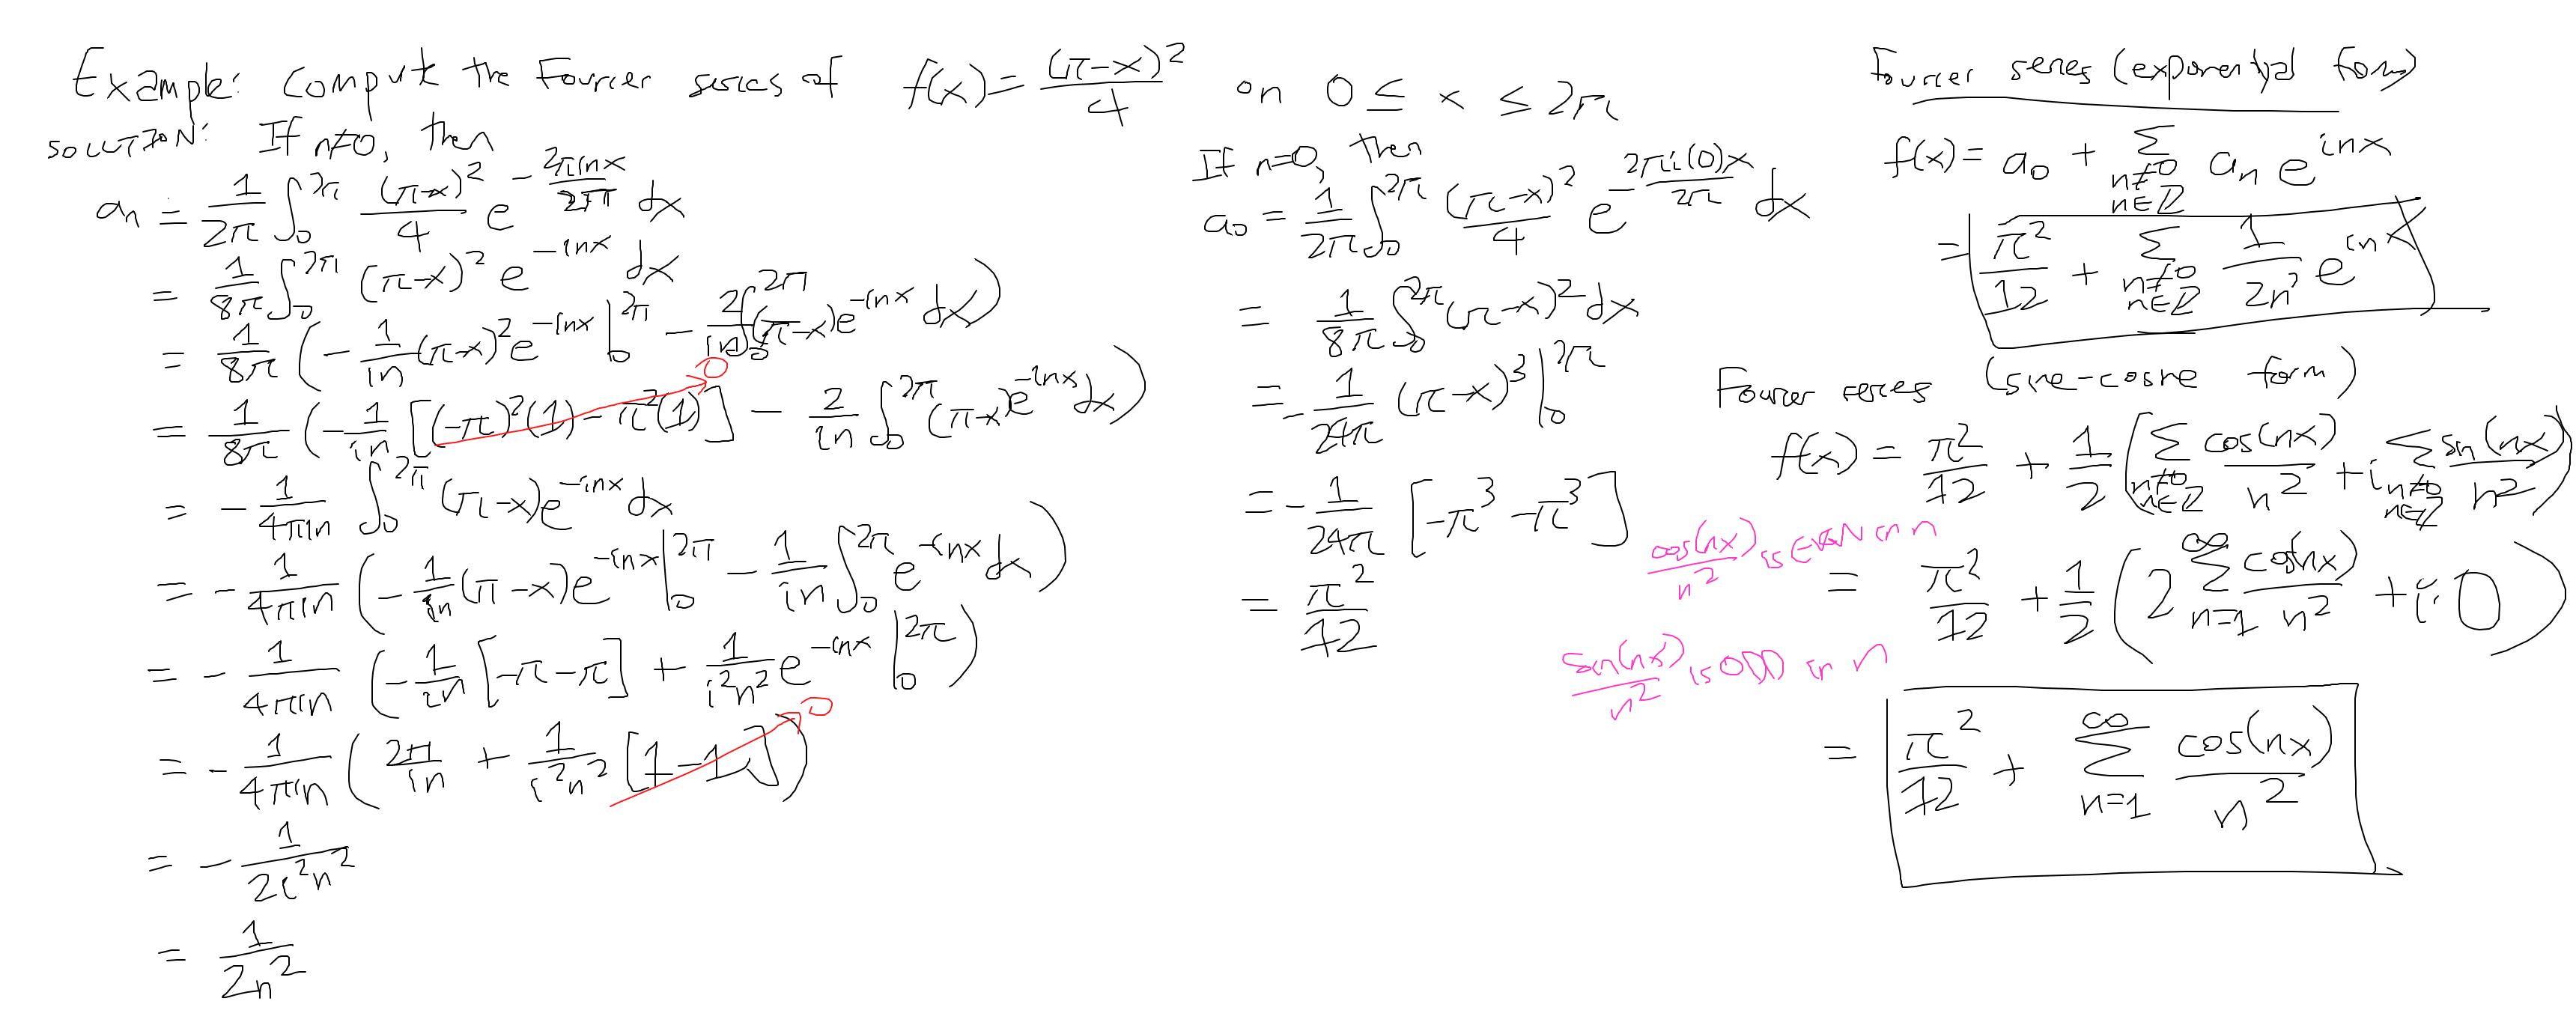 Example: Compute the Fourier series of f(x) = (π-x)²/4 on 0 ≤ x ≤ 2π
SOLUTION: If n≠0, then
aₙ = 1/2π ∫₀^2π (π-x)²/4 e^(-2πinx/2π) dx
= 1/8π ∫₀^2π (π-x)² e^(-inx) dx
= 1/8π (-1/in (π-x)² e^(-inx) |₀^2π - 2/in ∫₀^2π (π-x) e^(-inx) dx)
0
= 1/8π (-1/in [(-π)²(1) - π²(1)] - 2/in ∫₀^2π (π-x) e^(-inx) dx)
= -1/4πin ∫₀^2π (π-x) e^(-inx) dx
= -1/4πin (-1/in (π-x) e^(-inx) |₀^2π - 1/in ∫₀^2π e^(-inx) dx)
= -1/4πin (-1/in [-π-π] + 1/i²n² e^(-inx) |₀^2π)
0
= -1/4πin (2π/in + 1/i²n² [1-1])
= -1/2i²n²
= 1/2n²
If n=0, then
a₀ = 1/2π ∫₀^2π (π-x)²/4 e^(-2πi(0)x/2π) dx
= 1/8π ∫₀^2π (π-x)² dx
= -1/24π (π-x)³ |₀^2π
= -1/24π [-π³ - π³]
= π²/12
Fourier series (exponential form)
f(x) = a₀ + Σ_(n≠0, n∈ℤ) aₙ e^(inx)
= π²/12 + Σ_(n≠0, n∈ℤ) 1/2n² e^(inx)
Fourier series (sine-cosine form)
f(x) = π²/12 + 1/2 (Σ_(n≠0, n∈ℤ) cos(nx)/n² + i Σ_(n≠0, n∈ℤ) sin(nx)/n²)
cos(nx)/n² is EVEN in n
= π²/12 + 1/2 (2 Σ_(n=1)^∞ cos(nx)/n² + i·0)
sin(nx)/n² is ODD in n
= π²/12 + Σ_(n=1)^∞ cos(nx)/n²